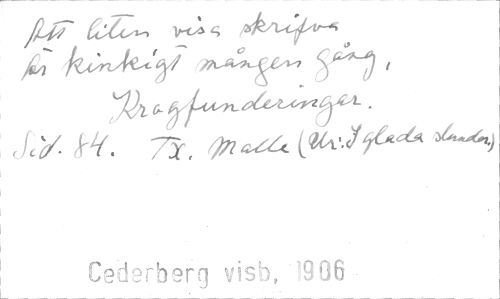 Att liten visa skrifva
är kinkigt mången gång,
Kragfunderingar.
Sid. 84. Tx. Malle (Ur: I glada stunder.)
Cederberg visb, 1906